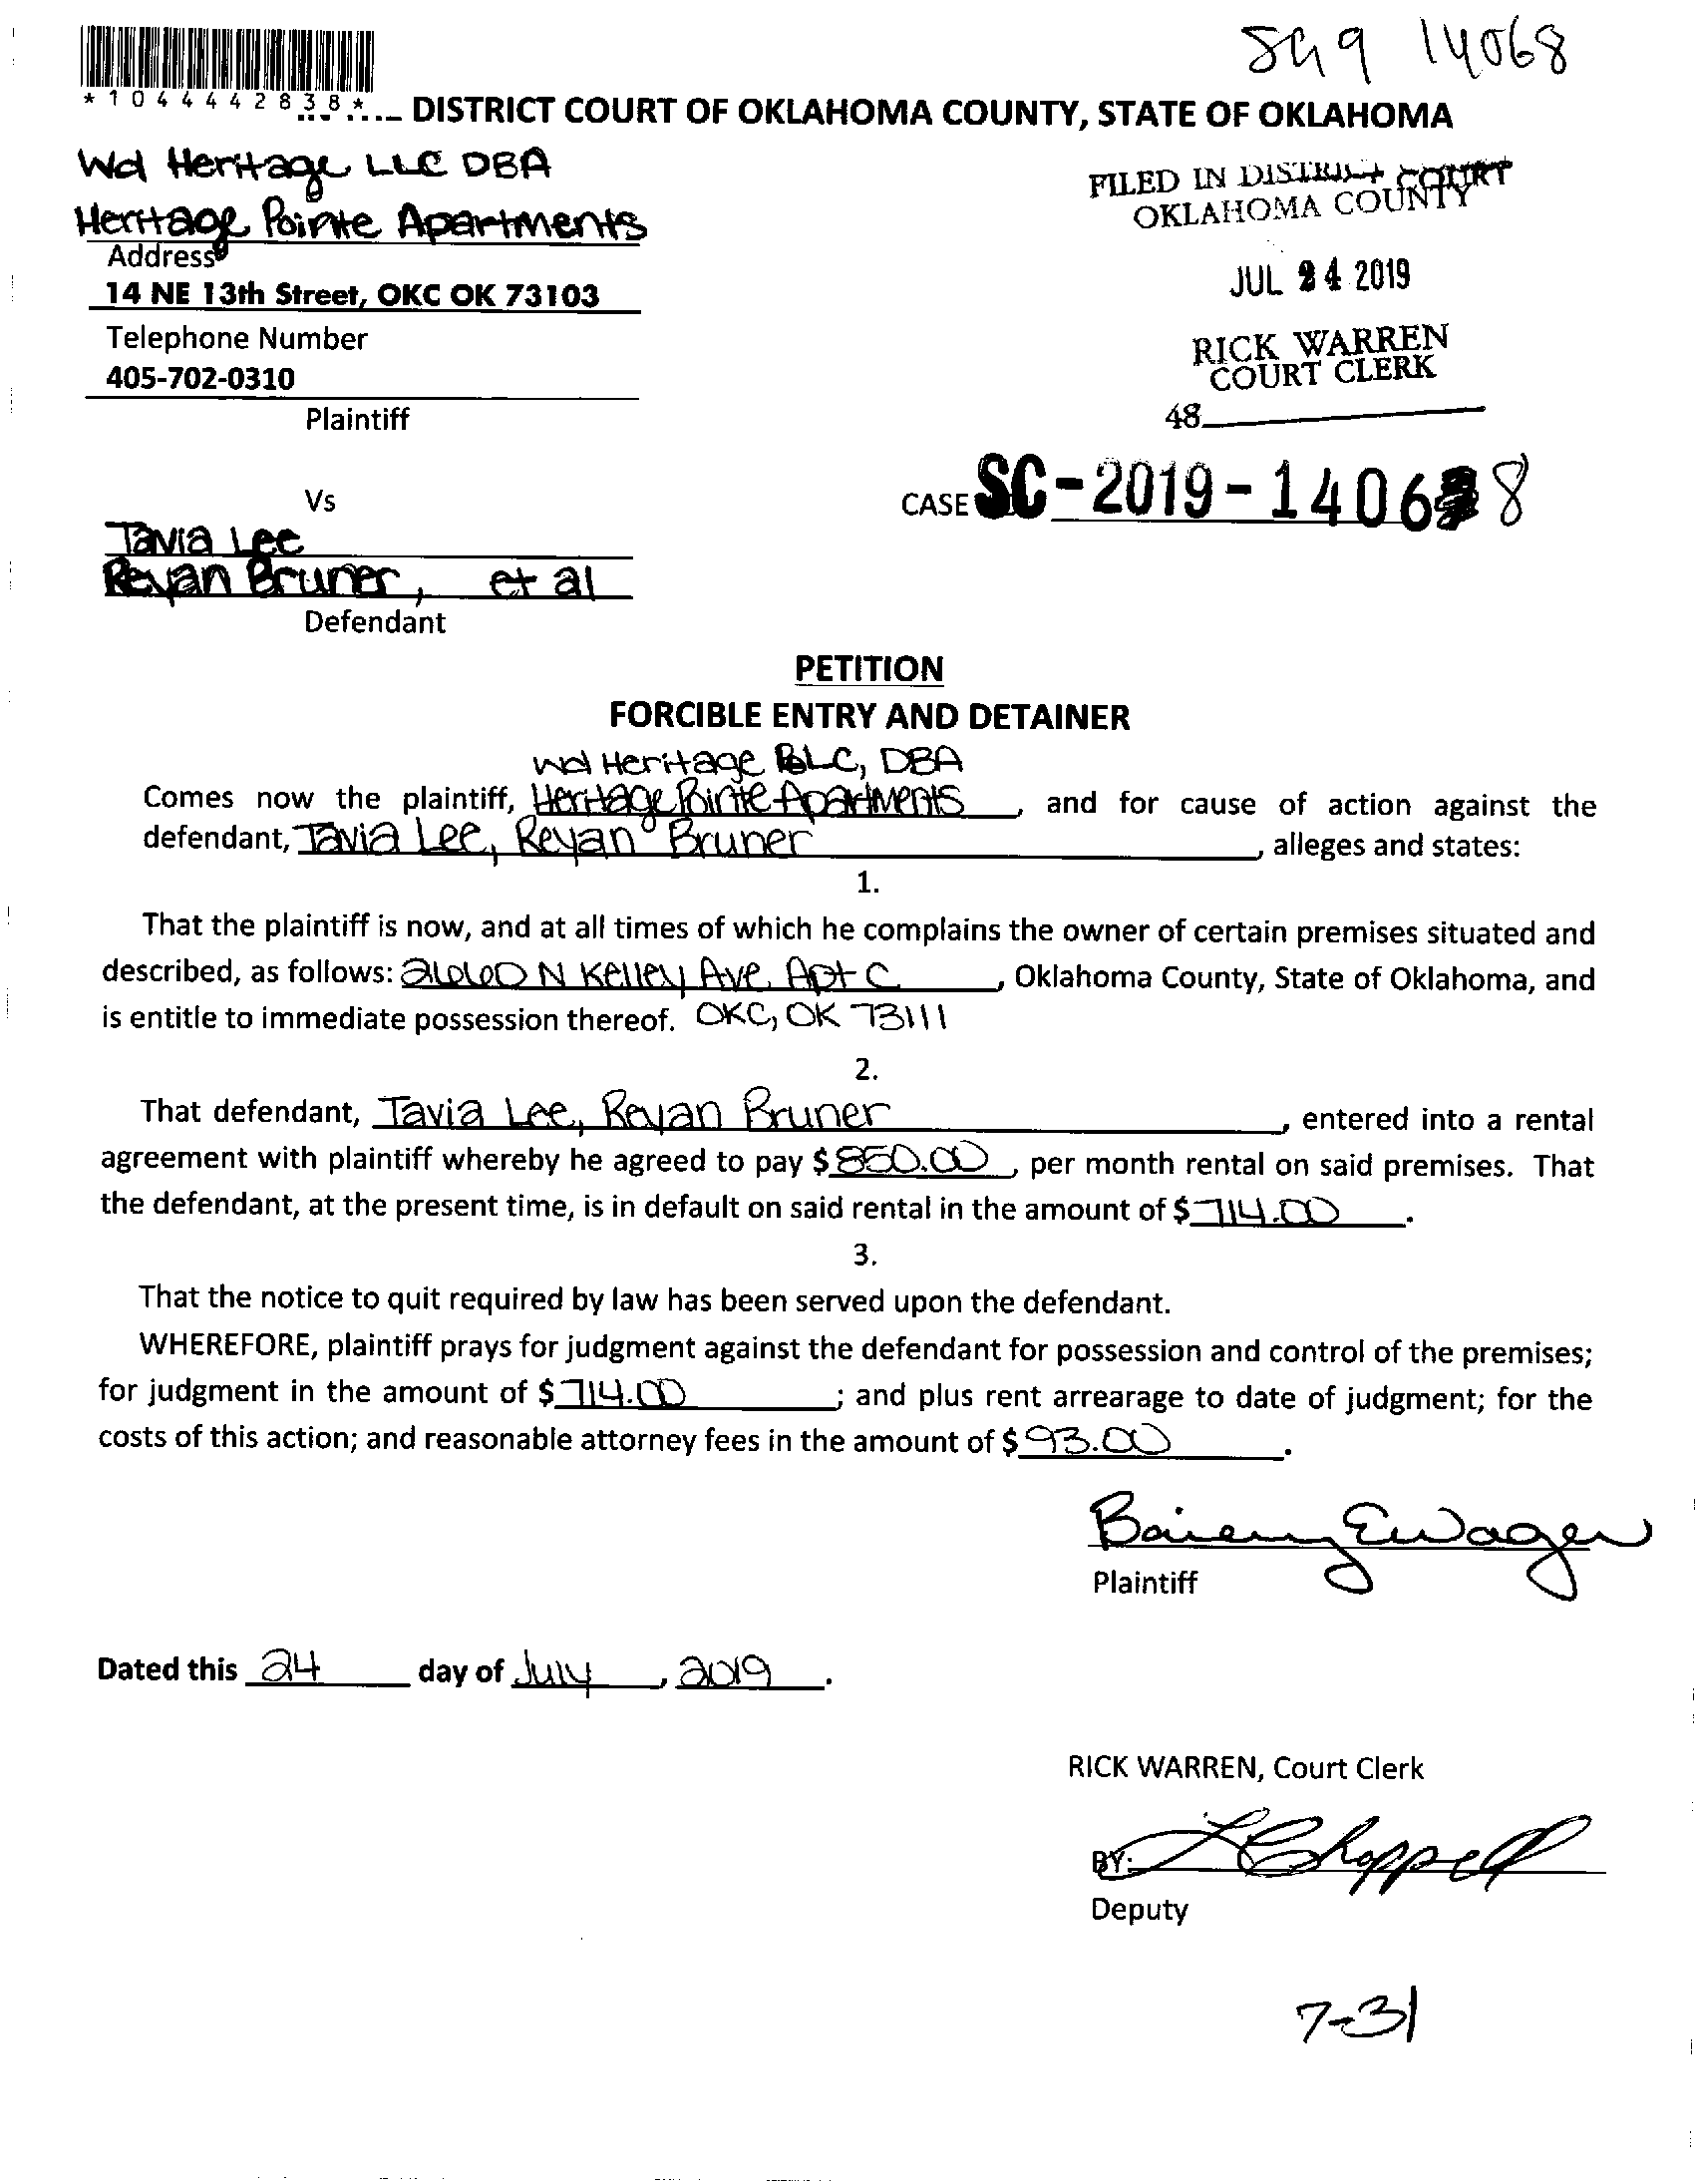 SC19 14068
*1044442838*
DISTRICT COURT OF OKLAHOMA COUNTY, STATE OF OKLAHOMA
Wd Heritage LLC DBA
Heritage Pointe Apartments
Address
14 NE 13th Street, OKC OK 73103
Telephone Number
405-702-0310
Plaintiff
FILED IN DISTRICT COURT
OKLAHOMA COUNTY
JUL 24 2019
RICK WARREN
COURT CLERK
48
Vs
CASE SC-2019-14068
Tavia Lee
Reyan Bruner, et al
Defendant
PETITION
FORCIBLE ENTRY AND DETAINER
Wd Heritage LLC, DBA
Comes now the plaintiff, Heritage Pointe Apartments, and for cause of action against the
defendant, Tavia Lee, Reyan Bruner, alleges and states:
1.
That the plaintiff is now, and at all times of which he complains the owner of certain premises situated and
described, as follows: 2660 N Kelley Ave Apt C, Oklahoma County, State of Oklahoma, and
is entitle to immediate possession thereof. OKC, OK 73111
2.
That defendant, Tavia Lee, Reyan Bruner, entered into a rental
agreement with plaintiff whereby he agreed to pay $850.00, per month rental on said premises. That
the defendant, at the present time, is in default on said rental in the amount of $714.00.
3.
That the notice to quit required by law has been served upon the defendant.
WHEREFORE, plaintiff prays for judgment against the defendant for possession and control of the premises;
for judgment in the amount of $714.00; and plus rent arrearage to date of judgment; for the
costs of this action; and reasonable attorney fees in the amount of $93.00.
Plaintiff
Dated this 24 day of July, 2019.
RICK WARREN, Court Clerk
BY: Chappell
Deputy
7-31